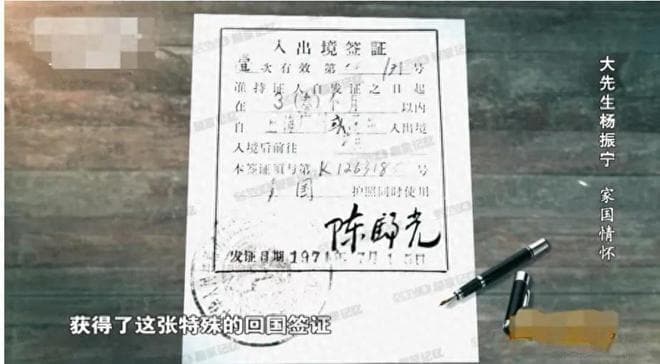 入出境签証
壹次有效第 131号
准持证人自发证之日起
在 3(叁)个月 以内
自 上海 或 入出境
入境后前往
本签证须与第K126318 号
美国 护照同时使用
陈
发证日期1971年7月15日
大先生杨振宁 家国情怀
获得了这张特殊的回国签证